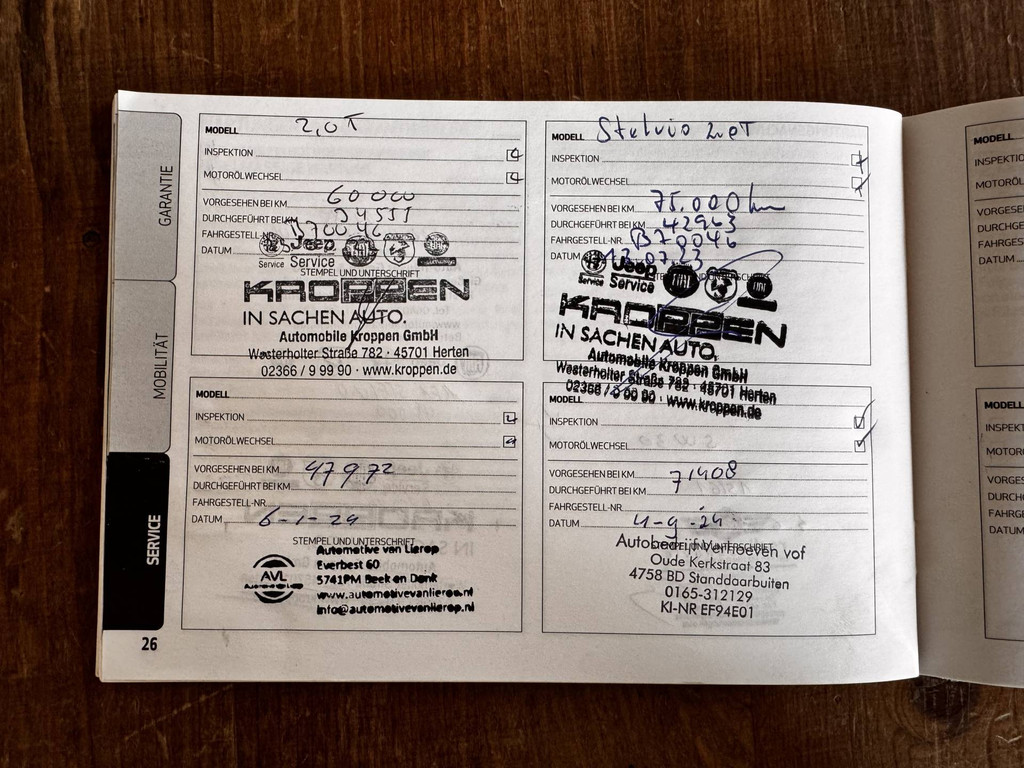 GARANTIE
MOBILITÄT
SERVICE
26
MODELL 2,0T
INSPEKTION
MOTORÖLWECHSEL
VORGESEHEN BEI KM 60000
DURCHGEFÜHRT BEI KM
FAHRGESTELL-NR. B70046
DATUM
Jeep
Service Service
STEMPEL UND UNTERSCHRIFT
KROPPEN
IN SACHEN AUTO.
Automobile Kroppen GmbH
Westerholter Straße 782 · 45701 Herten
02366 / 9 99 90 · www.kroppen.de
MODELL Stelvio 2.0T
INSPEKTION
MOTORÖLWECHSEL
VORGESEHEN BEI KM 75.000 km
DURCHGEFÜHRT BEI KM 42963
FAHRGESTELL-NR. B70046
DATUM 12.07.23
Jeep
Service Service
KROPPEN
IN SACHEN AUTO.
Automobile Kroppen GmbH
Westerholter Straße 782 · 45701 Herten
02366 / 9 99 90 · www.kroppen.de
MODELL
INSPEKTION
MOTORÖLWECHSEL
VORGESEHEN BEI KM 47972
DURCHGEFÜHRT BEI KM
FAHRGESTELL-NR.
DATUM 6-1-24
STEMPEL UND UNTERSCHRIFT
AVL
Automotive van Lierop
Everbest 60
5741PM Beek en Donk
www.automotivevanlierop.nl
info@automotivevanlierop.nl
MODELL
INSPEKTION
MOTORÖLWECHSEL
VORGESEHEN BEI KM 71408
DURCHGEFÜHRT BEI KM
FAHRGESTELL-NR.
DATUM 4-9-24
Autobedrijf Verhoeven vof
Oude Kerkstraat 83
4758 BD Standdaarbuiten
0165-312129
KI-NR EF94E01
MODELL
INSPEKTIO
MOTORÖL
VORGESE
DURCHGE
FAHRGES
DATUM
MODELL
INSPEKT
MOTORÖ
VORGES
DURCH
FAHRG
DATUM